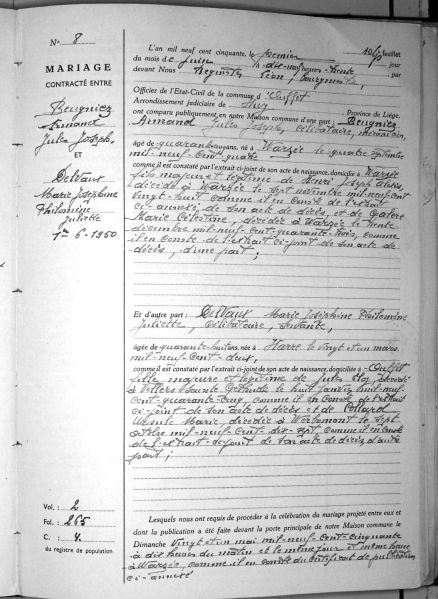 N° 8
MARIAGE
CONTRACTÉ ENTRE
Beugniez
Armand
Jules Joseph,
ET
Delvaux
Marie Joséphine
Philomène
Juliette
1er-6-1950
Vol.: 2
Fol.: 265
C.: 4.
du registre de population
feuillet
L'an mil neuf cent cinquante, le premier jour
du mois de juin à dix-neuf heures trente par
devant Nous Léon, bourgmestre,
Officier de l'Etat-Civil de la commune d'Ouffet
Arrondissement judiciaire de Huy, Province de Liège.
ont comparu publiquement, en notre Maison commune d'une part: Beugniez
Armand Jules Joseph, célibataire,
âgé de quarante ans, né à Warzée le quatre septembre
mil-neuf-cent-quatre
comme il est constaté par extrait ci-joint de son acte de naissance, domicilié à Warzée
fils majeur et légitime de Henri Joseph
décédé à Warzée le sept novembre mil-neuf-cent
vingt-huit comme il en conste de l'extrait
ci-annexé de son acte de décès, et de
Marie Célestine, décédée à Warzée le trente
décembre mil-neuf-cent-quarante-trois, comme
il en conste de l'extrait ci-joint de son acte de
décès, d'une part;
Et d'autre part: Delvaux Marie Joséphine Philomène
Juliette, célibataire, servante,
âgée de quarante-huit ans, née à Harre le vingt et un mars
mil-neuf-cent-deux,
comme il est constaté par l'extrait ci-joint de son acte de naissance, domiciliée à Ouffet
fille majeure et légitime de Jules Eloy, décédé
à Villers Sainte Gertrude le huit janvier mil-neuf-
cent-quarante-cinq, comme il en conste de l'extrait
ci-joint de son acte de décès et de Collard
Marie, décédée à Werbomont le sept
octobre mil-neuf-cent-dix-sept, comme il en conste
de l'extrait ci-joint de son acte de décès, d'autre
part;
Lesquels nous ont requis de procéder à la célébration du mariage projeté entre eux et
dont la publication a été faite devant la porte principale de notre Maison commune le
Dimanche vingt et un mai mil-neuf-cent-cinquante
à dix heures du matin et le même jour et même heure
à Warzée, comme il en conste du certificat de publication
ci-annexé